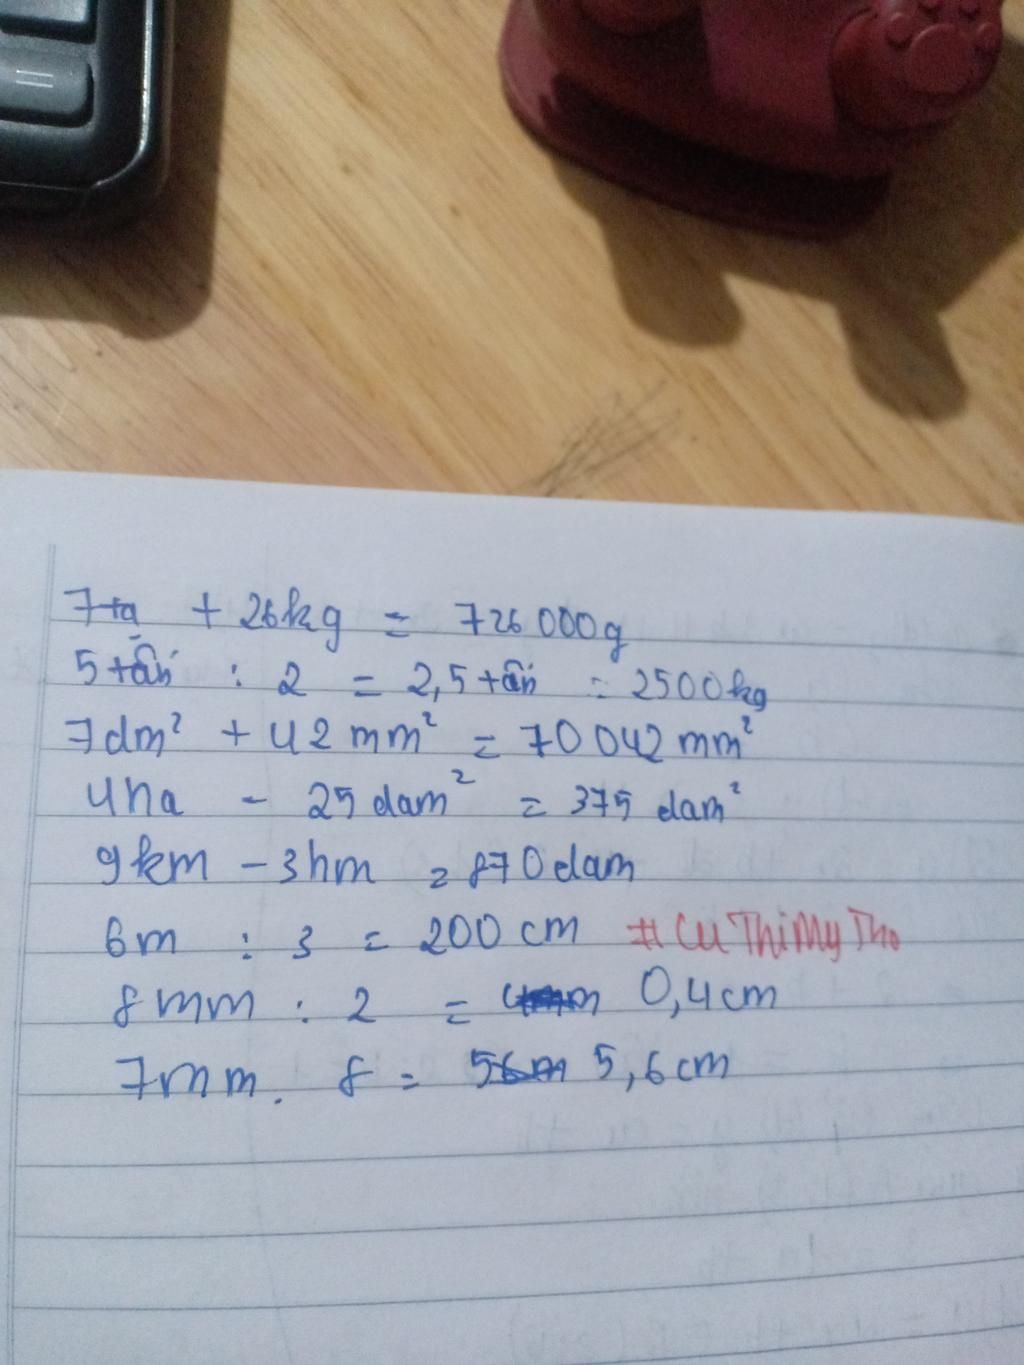 7tạ + 26kg = 726000g
5tấn : 2 = 2,5tấn = 2500kg
7dm² + 42mm² = 70042mm²
4ha - 25dam² = 375dam²
9km - 3hm = 870dam
6m : 3 = 200cm #CuThiMyTho
8mm : 2 = 0,4cm
7mm . 8 = 5,6cm